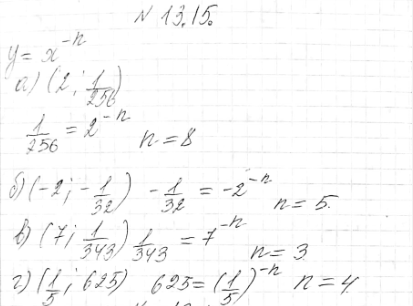 № 13.15.
y = x^{-n}
а) (2; 1/256)
1/256 = 2^{-n} n = 8
б) (-2; -1/32) -1/32 = -2^{-n} n = 5.
в) (7; 1/343) 1/343 = 7^{-n} n = 3
г) (1/5; 625) 625 = (1/5)^{-n} n = 4